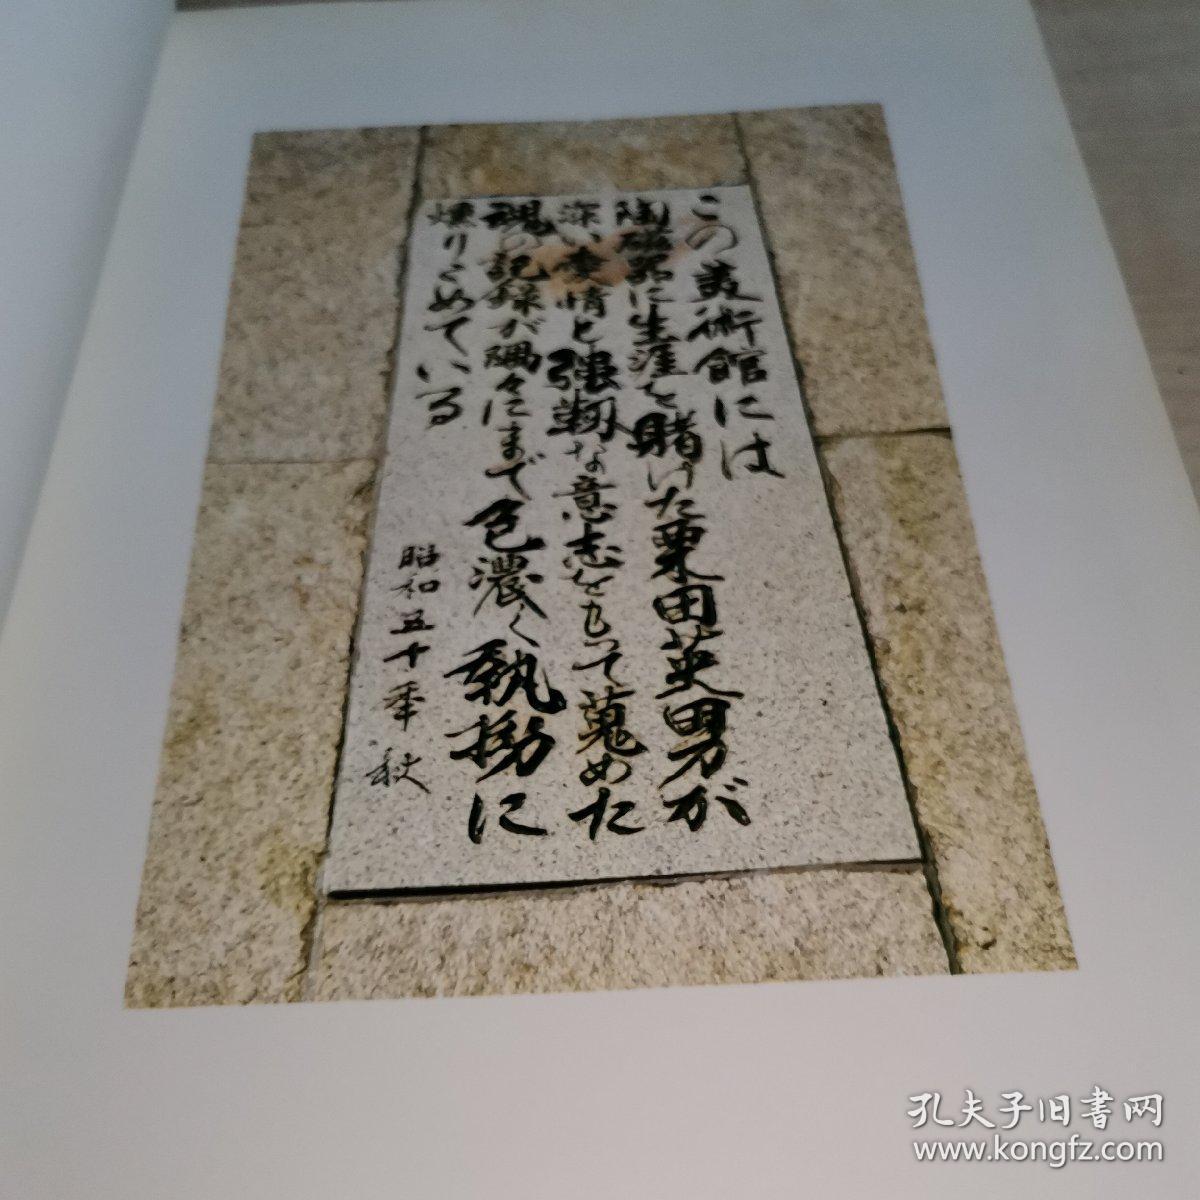 この美術館には
陶磁器に生涯を賭けた栗田英男が
深い愛情と强靭な意志をもって蒐めた
魂の記録が隅々にまで色濃く執拗に
燻りこめている
昭和五十年秋
孔夫子旧书网
www.kongfz.com